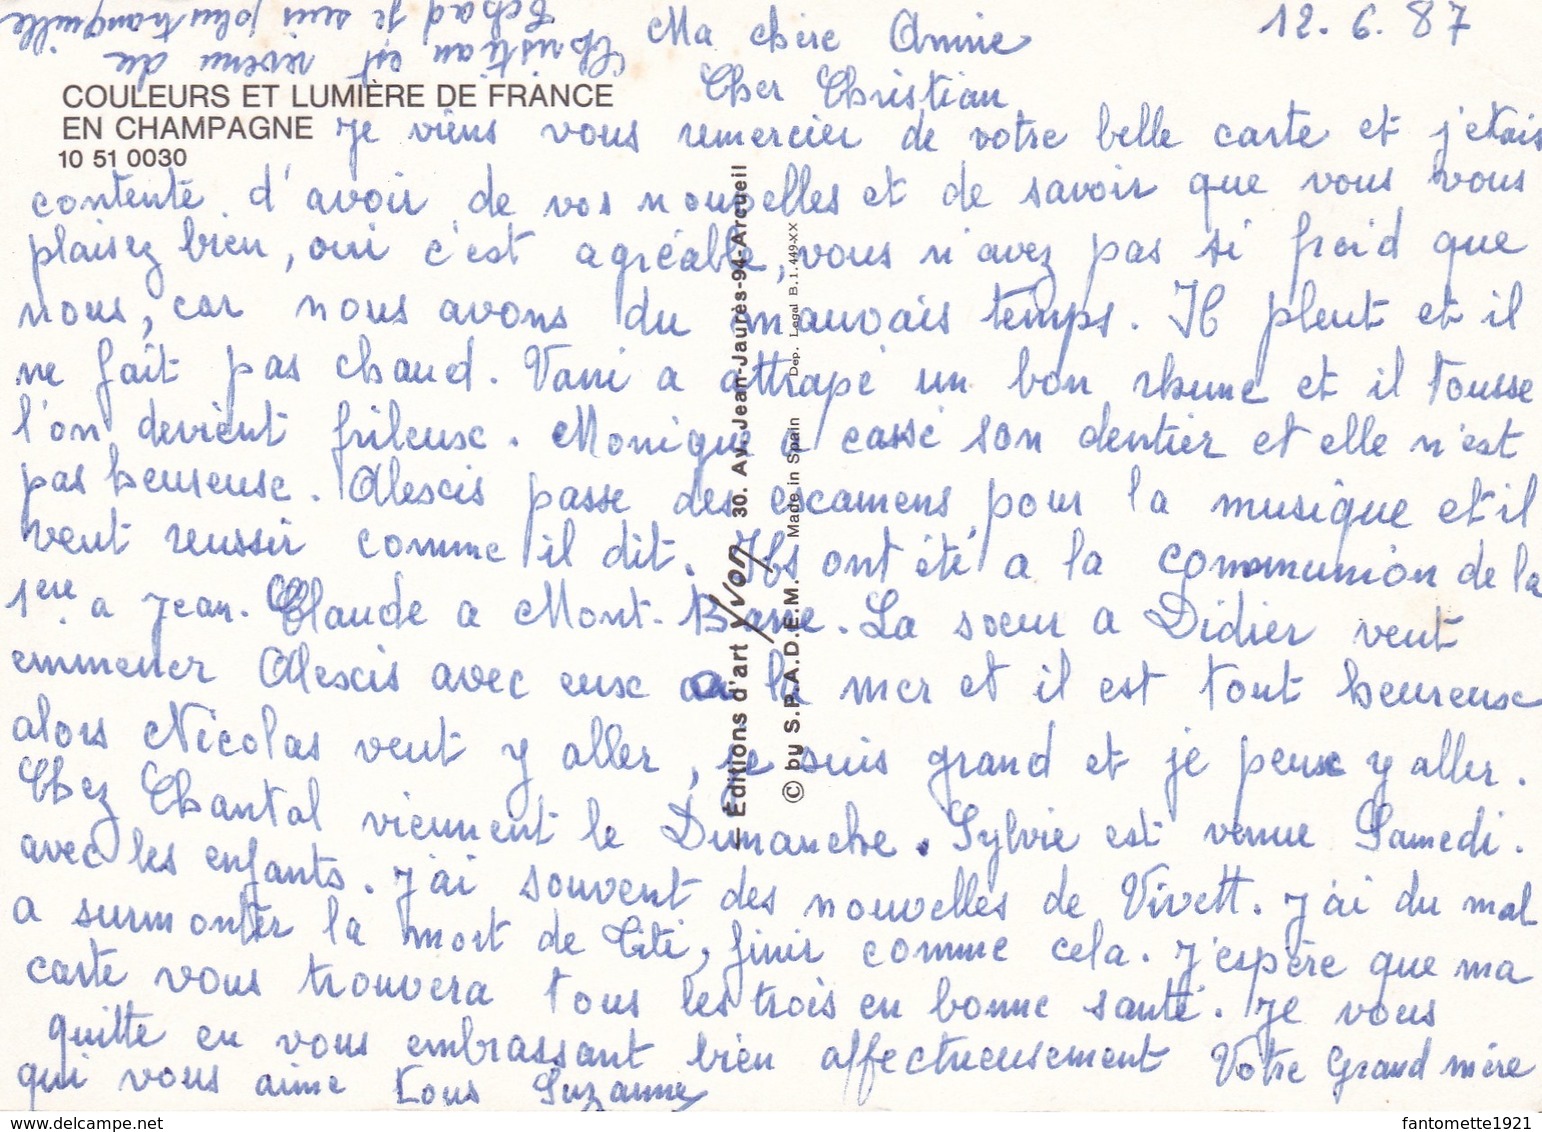 12.6.87
Ma chère Annie
Cher Christian
Christian est revenu du
Tchad je suis plus tranquille
COULEURS ET LUMIÈRE DE FRANCE
EN CHAMPAGNE
10 51 0030
Je viens vous remercier de votre belle carte et j'etais
contente d'avoir de vos nouvelles et de savoir que vous vous
plaisez bien, oui c'est agréable, vous n'avez pas si froid que
nous, car nous avons du mauvais temps. Il pleut et il
ne fait pas chaud. Vani a attrapé un bon rhume et il tousse
l'on devient frileuse. Monique a cassé son dentier et elle n'est
pas heureuse. Alexis passe des examens pour la musique et il
veut reussir comme il dit. Ils ont été a la communion de la
1ere a Jean-Claude a Mont-Bare. La sœur a Didier veut
emmener Alexis avec eux a la mer et il est tout heureux
alors Nicolas veut y aller, je suis grand et je peux y aller.
Chez Chantal viennent le Dimanche. Sylvie est venue Samedi.
avec les enfants. J'ai souvent des nouvelles de Vivett. J'ai du mal
a surmonter la mort de Titi, finir comme cela. J'espère que ma
carte vous trouvera tous les trois en bonne santé. Je vous
quitte en vous embrassant bien affectueusement Votre Grand mère
qui vous aime tous Suzanne
— Éditions d'art Yvon 30. Av. Jean-Jaurès-94-Arcueil
© by S.P.A.D.E.M. Made in Spain Dep. Legal B.1.449-XX
fantomette1921